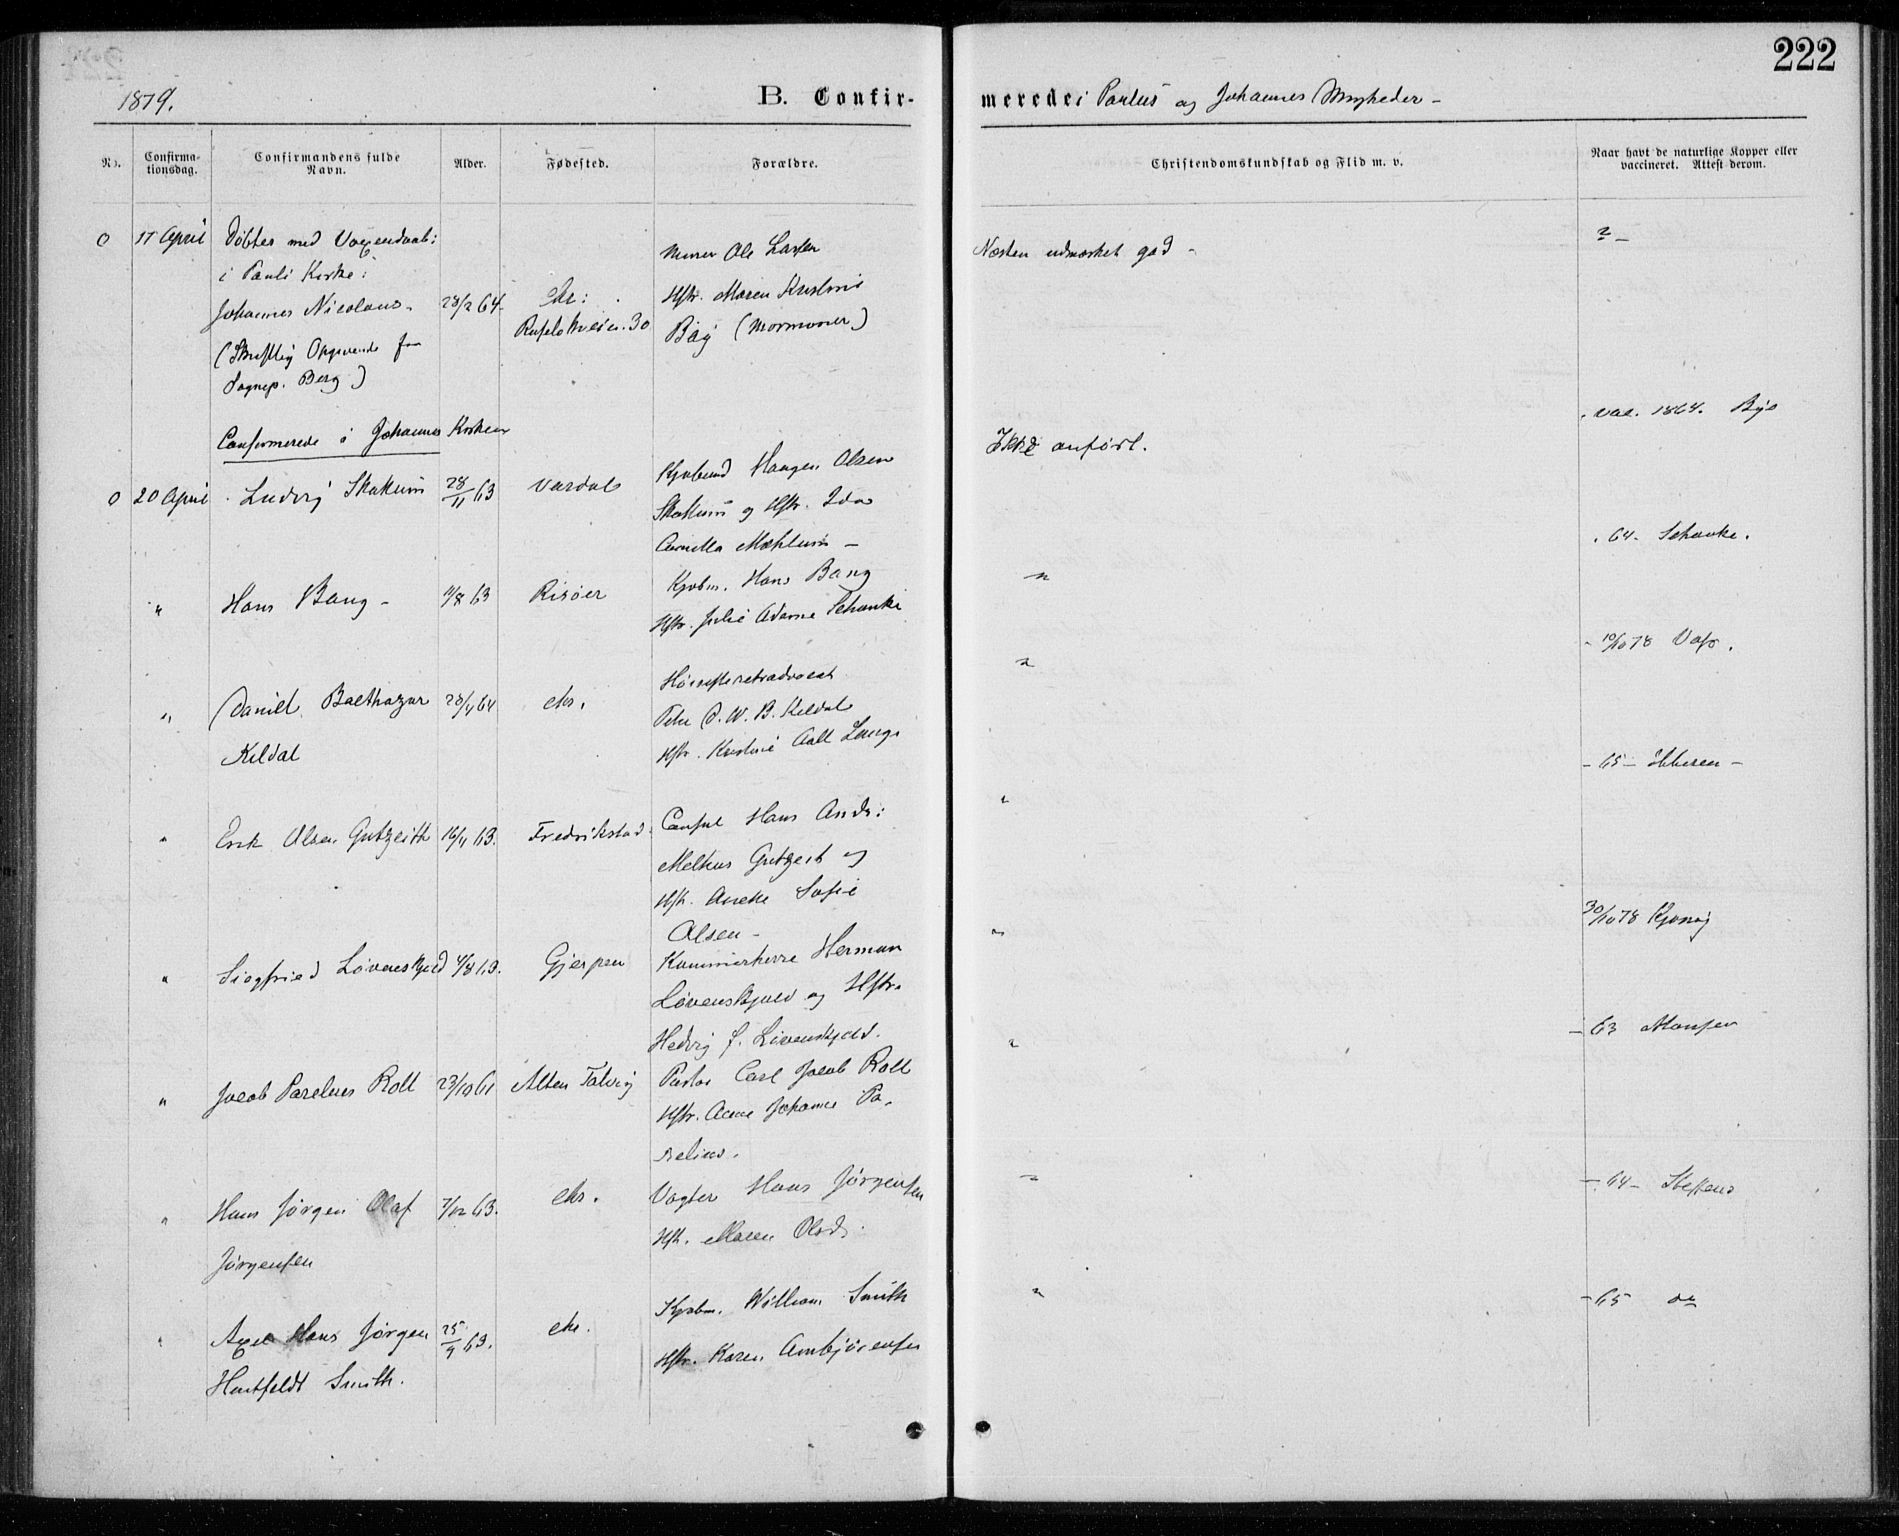 222
1879.
B. Confirmerede i Paulus og Johannes Menigheder -
No.
Confirmationsdag.
Confirmandens fulde Navn.
Alder.
Fødested.
Forældre.
Christendomskundskab og Flid m. v.
Naar havt de naturlige Kopper eller vaccineret. Attest derom.
0 17 April Døbtes med
i Pauli Kirke:
Johannes Nicolaus 28/2 64 Chr: 30
(Skriftlig Opgivende fra
Sognep. Berg)
Murer Ole Larsen
Hstr. Maren Kristine
(Mormoner)
Næsten udmærket god -
? -
Confirmerede i Johannes Kirken
0 20 April Ludvig Skattum 28/11 63 Vardal
Kjøbmd Haagen Olsen
Skattum og Hstr. Ida
Mæhlum -
Ikke anført.
vac. 1864.
" Hans Bang - 11/8 63 Risøer
Kjøbm. Hans Bang
Hstr. Julie Schanke
"
64 - Schanke.
" Daniel Balthazar 28/4 64 chr.
Kildal
Høiesteretsadvocat
Peter D. W. B. Kildal
Hstr. Kristine Aall Lange
"
- 10/10 78 Voss.
" Erik Olsen Gutzeith 16/11 63. Fredrikstad
Consul Hans Andr:
Melkus Gutzeit og
Hstr. Sofie
Olsen -
"
- 65 -
" Siegfried Løvenskjold 4/8 63. Gjerpen
Kammerherre Herman
Løvenskjold og Hstr.
Hedvig f. Løvenskjold.
"
30/10 78
" Jacob Parelius Roll 23/10 61 Alten Talvig
Pastor Carl Jacob Roll
Hstr. Anne Johanne Parelius.
"
- 63 Monsen
" Hans Jørgen Olaf 7/12 63. chr.
Jørgensen
Vogter Hans Jørgensen
Hstr. Maren Olsd.
"
- 64 - Steffens
" Axel Hans Jørgen 25/9 63. chr.
Huitfeldt Smith.
Kjøbm. William Smith
Hstr. Karen
"
- 65 do